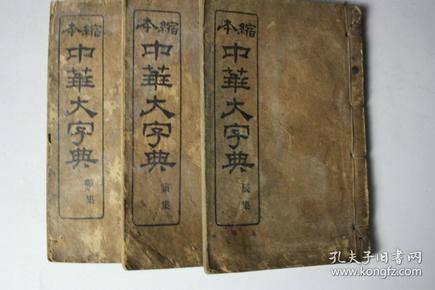 本縮
中華大字典
卯集
本縮
中華大字典
寅集
本縮
中華大字典
辰集
孔夫子旧书网
www.kongfz.com